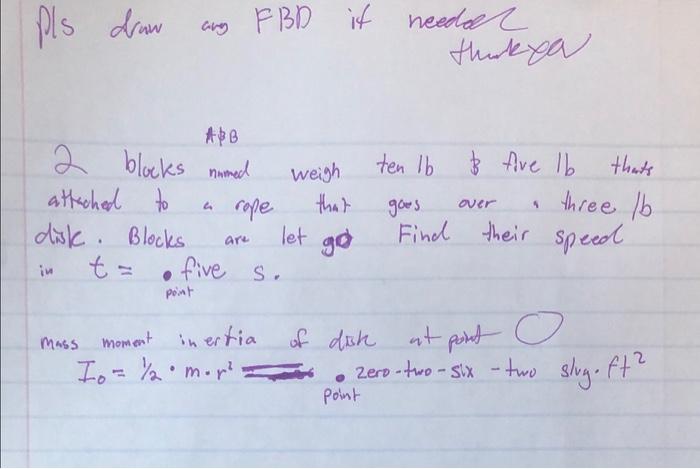 Pls draw any FBD if needed
thank you
A & B
2 blocks named weigh ten lb & five lb thats
attached to a rope that goes over a three lb
disk. Blocks are let go Find their speed
in t = . five s.
point
mass moment inertia of disk at point O
I₀ = 1/2 · m · r² = . zero-two-six-two slug·ft²
point